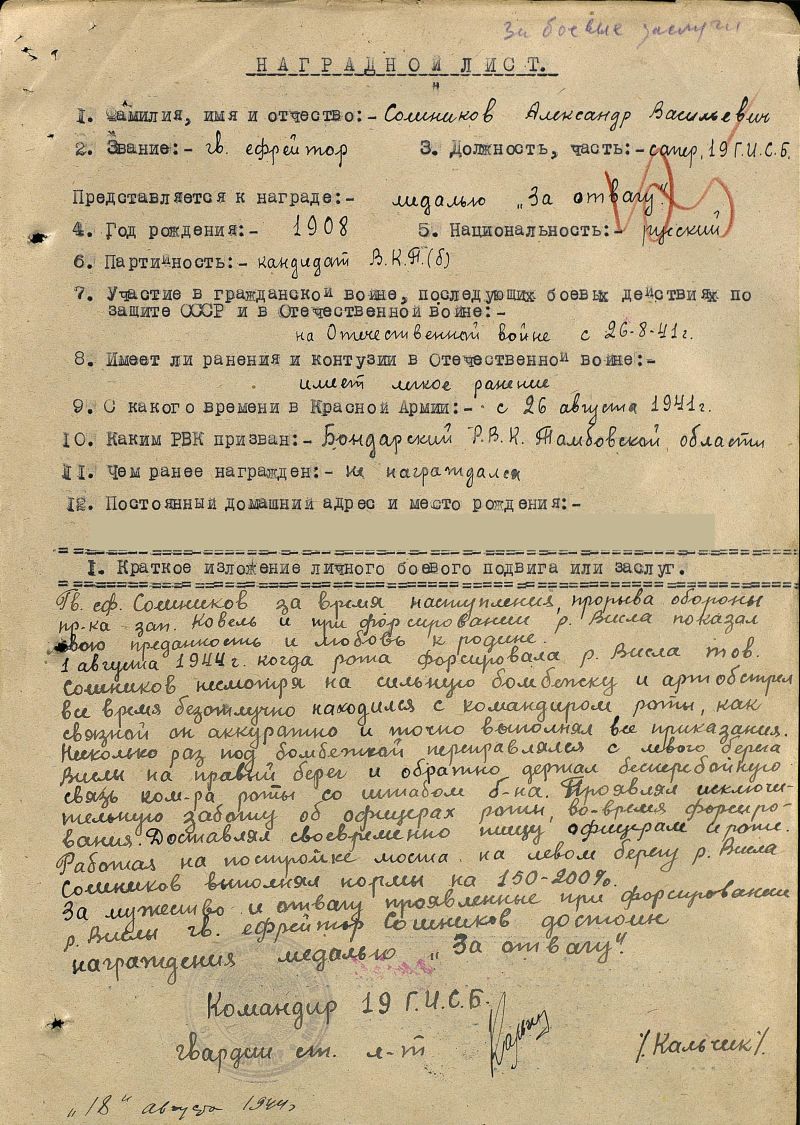 За боевые заслуги
НАГРАДНОЙ ЛИСТ.
1. Фамилия, имя и отчество:- Сошников Александр Васильевич
2. Звание:- гв. ефрейтор 3. Должность, часть:- сапер, 19 Г.И.С.Б.
Представляется к награде:- медалью „За отвагу".
4. Год рождения:- 1908 5. Национальность:- русский
6. Партийность:- кандидат В.К.П.(б)
7. Участие в гражданской войне, последующих боевых действиях по
защите СССР и в Отечественной войне:-
на Отечественной войне с 26-8-41г.
8. Имеет ли ранения и контузии в Отечественной войне:-
имеет легкое ранение
9. С какого времени в Красной Армии:- с 26 августа 1941г.
10. Каким РВК призван:- Бондарский Р.В.К. Тамбовской области
11. Чем ранее награжден:- не награждался
12. Постоянный домашний адрес и место рождения:-
1. Краткое изложение личного боевого подвига или заслуг.
Гв. еф. Сошников за время наступления, прорыва обороны
пр-ка зап. Ковель и при форсировании р. Висла показал
свою преданность и любовь к родине.
1 августа 1944г. когда рота форсировала р. Висла тов.
Сошников несмотря на сильную бомбежку и артобстрел
все время безотлучно находился с командиром роты, как
связной он аккуратно и точно выполнял все приказания.
Несколько раз под бомбежкой переправлялся с левого берега
Вислы на правый берег и обратно держал бесперебойную
связь ком-ра роты со штабом б-на. Проявлял исключи-
тельную заботу об офицерах роты, во-время форсиро-
вания. Доставлял своевременно пищу офицерам и роте.
Работая на постройке моста на левом берегу р. Висла
Сошников выполнял нормы на 150-200%.
За мужество и отвагу проявленные при форсировании
р. Вислы гв. ефрейтор Сошников достоин
награждения медалью „За отвагу".
Командир 19 Г.И.С.Б.
гвардии ст. л-т /Кальчик/.
„18" августа 1944г